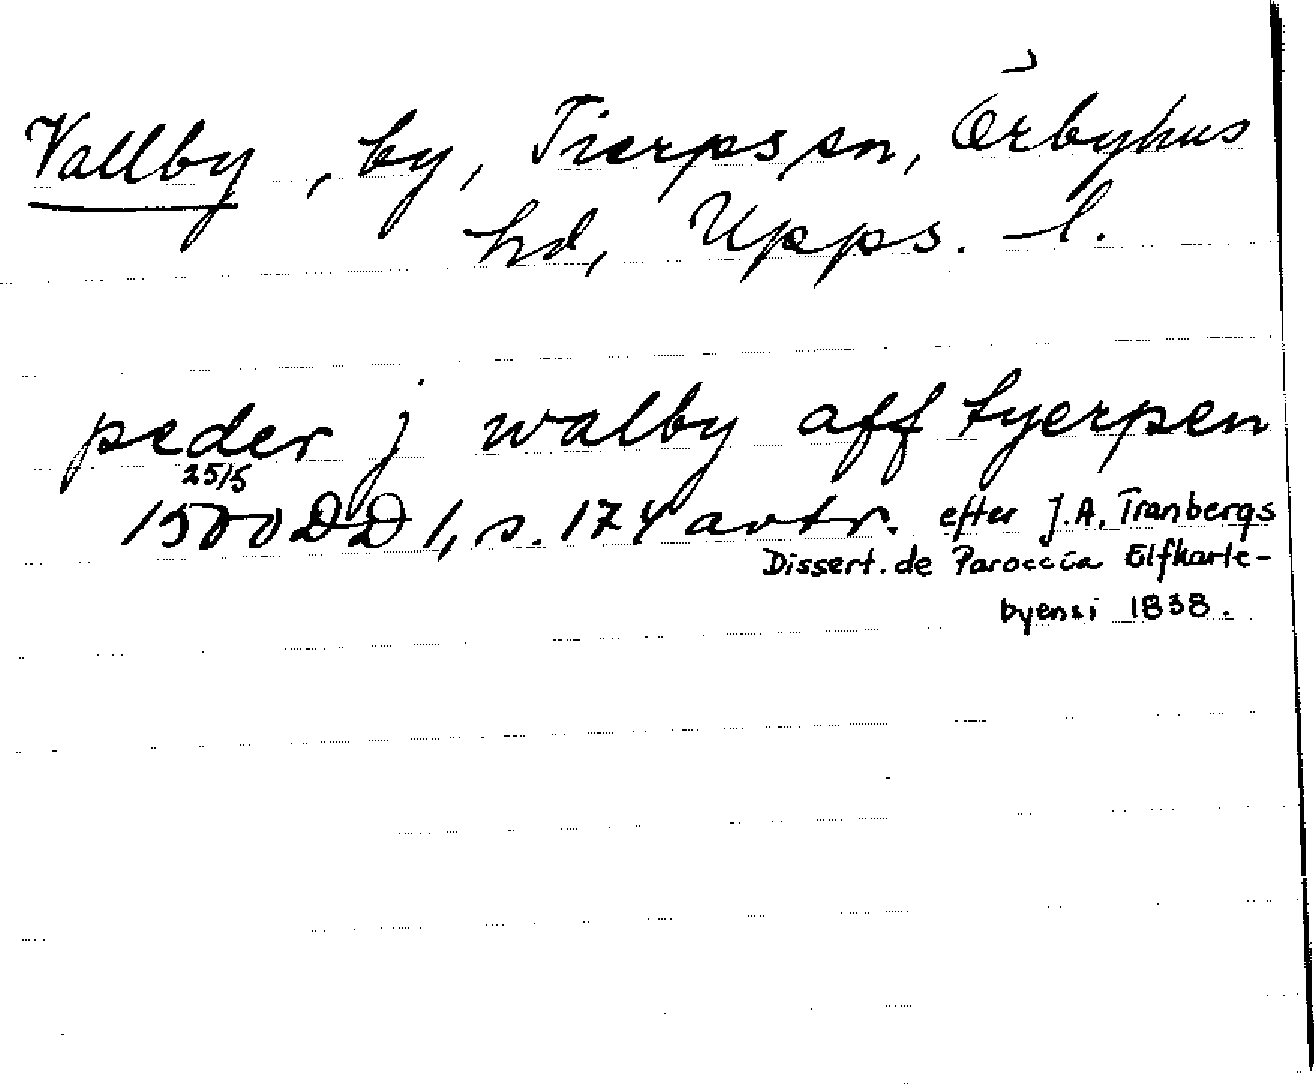 Vallby, by, Tierps sn, Örbyhus
hd, Upps. l.
peder j walby aff tyerpen
25/5
1500 DD 1, s. 174 avtr. efter J.A. Tranbergs
Dissert. de Paroccia Elfkarle-
byensi 1838.